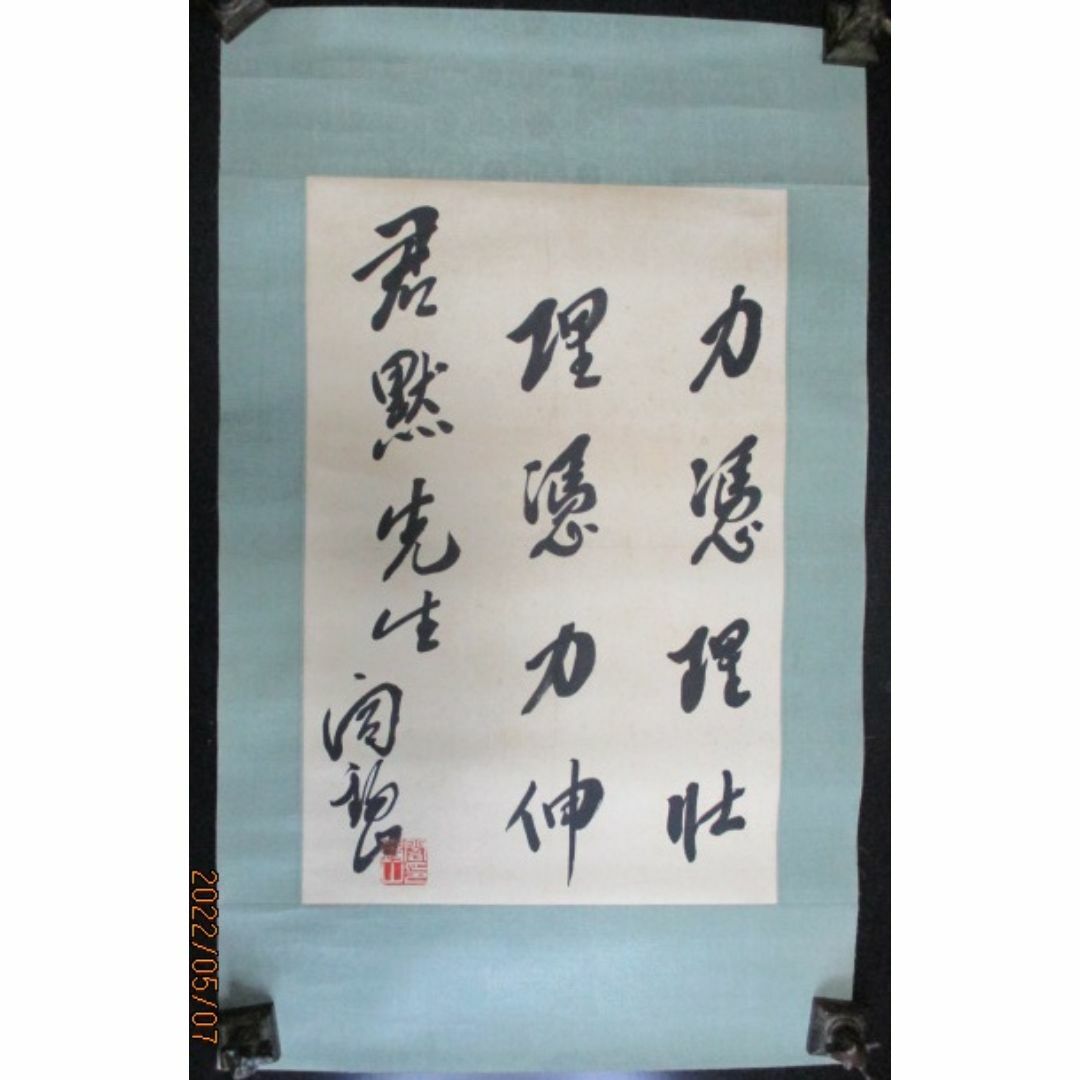 力憑理壯
理憑力伸
君默先生
閻錫山
2022/05/07